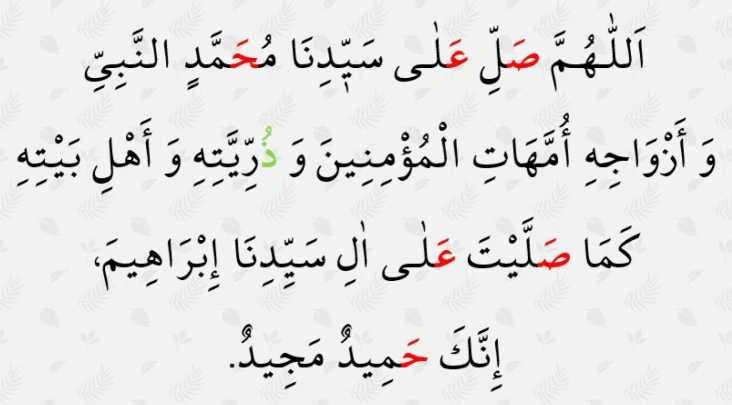 اَللّٰهُمَّ صَلِّ عَلٰى سَيِّدِنَا مُحَمَّدٍ النَّبِيِّ
وَ أَزْوَاجِهِ أُمَّهَاتِ الْمُؤْمِنِينَ وَ ذُرِّيَّتِهِ وَ أَهْلِ بَيْتِهِ
كَمَا صَلَّيْتَ عَلٰى اٰلِ سَيِّدِنَا إِبْرَاهِيمَ،
إِنَّكَ حَمِيدٌ مَجِيدٌ.